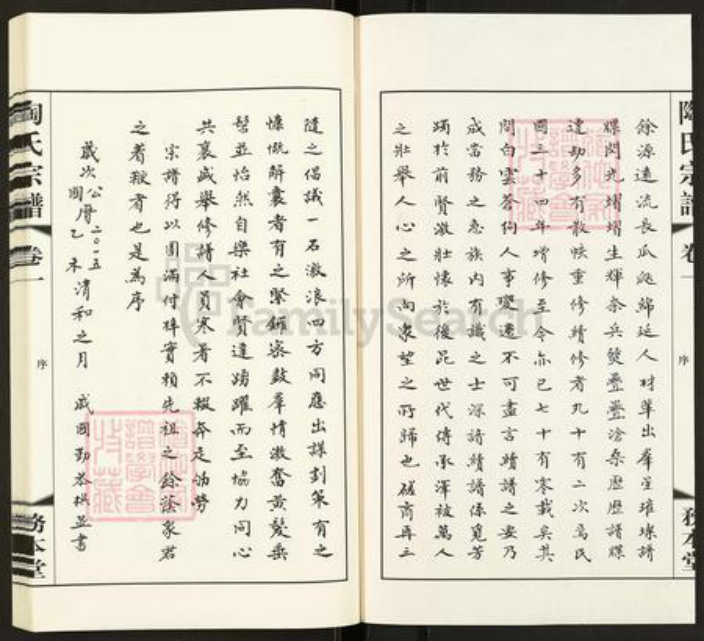 陶氏宗譜 卷一
序
務本堂
餘源遠流長瓜瓞綿延人材輩出羣星璀璨譜
牒閃光熠熠生輝奈兵燹疊疊滄桑歷歷譜牒
遭劫多有散帙重修續修者凡十有二次爲民
國三十四年增修至今亦已七十有零載矣其
間白雲蒼狗人事變遷不可盡言續譜之要乃
成當務之急族内有識之士深諳續譜係覓芳
躅於前賢激壯懷於後昆世代傳承渾被萬人
之壯舉人心之所向衆望之所歸也磋商再三
隨之倡議一石激浪四方同應出謀劃策有之
慷慨解囊者有之緊鑼密鼓羣情激奮黄髮垂
髫並怡然自樂社會賢達踴躍而至協力同心
共襄盛舉修譜人員寒暑不輟奔走劬勞
宗譜得以圓滿付梓實賴先祖之餘蔭衆君
之着鞭者也是爲序
歲次公曆二〇一五
國曆乙未清和之月 戚國勤恭撰並書
陶氏宗譜 卷一
序
務本堂
FamilySearch